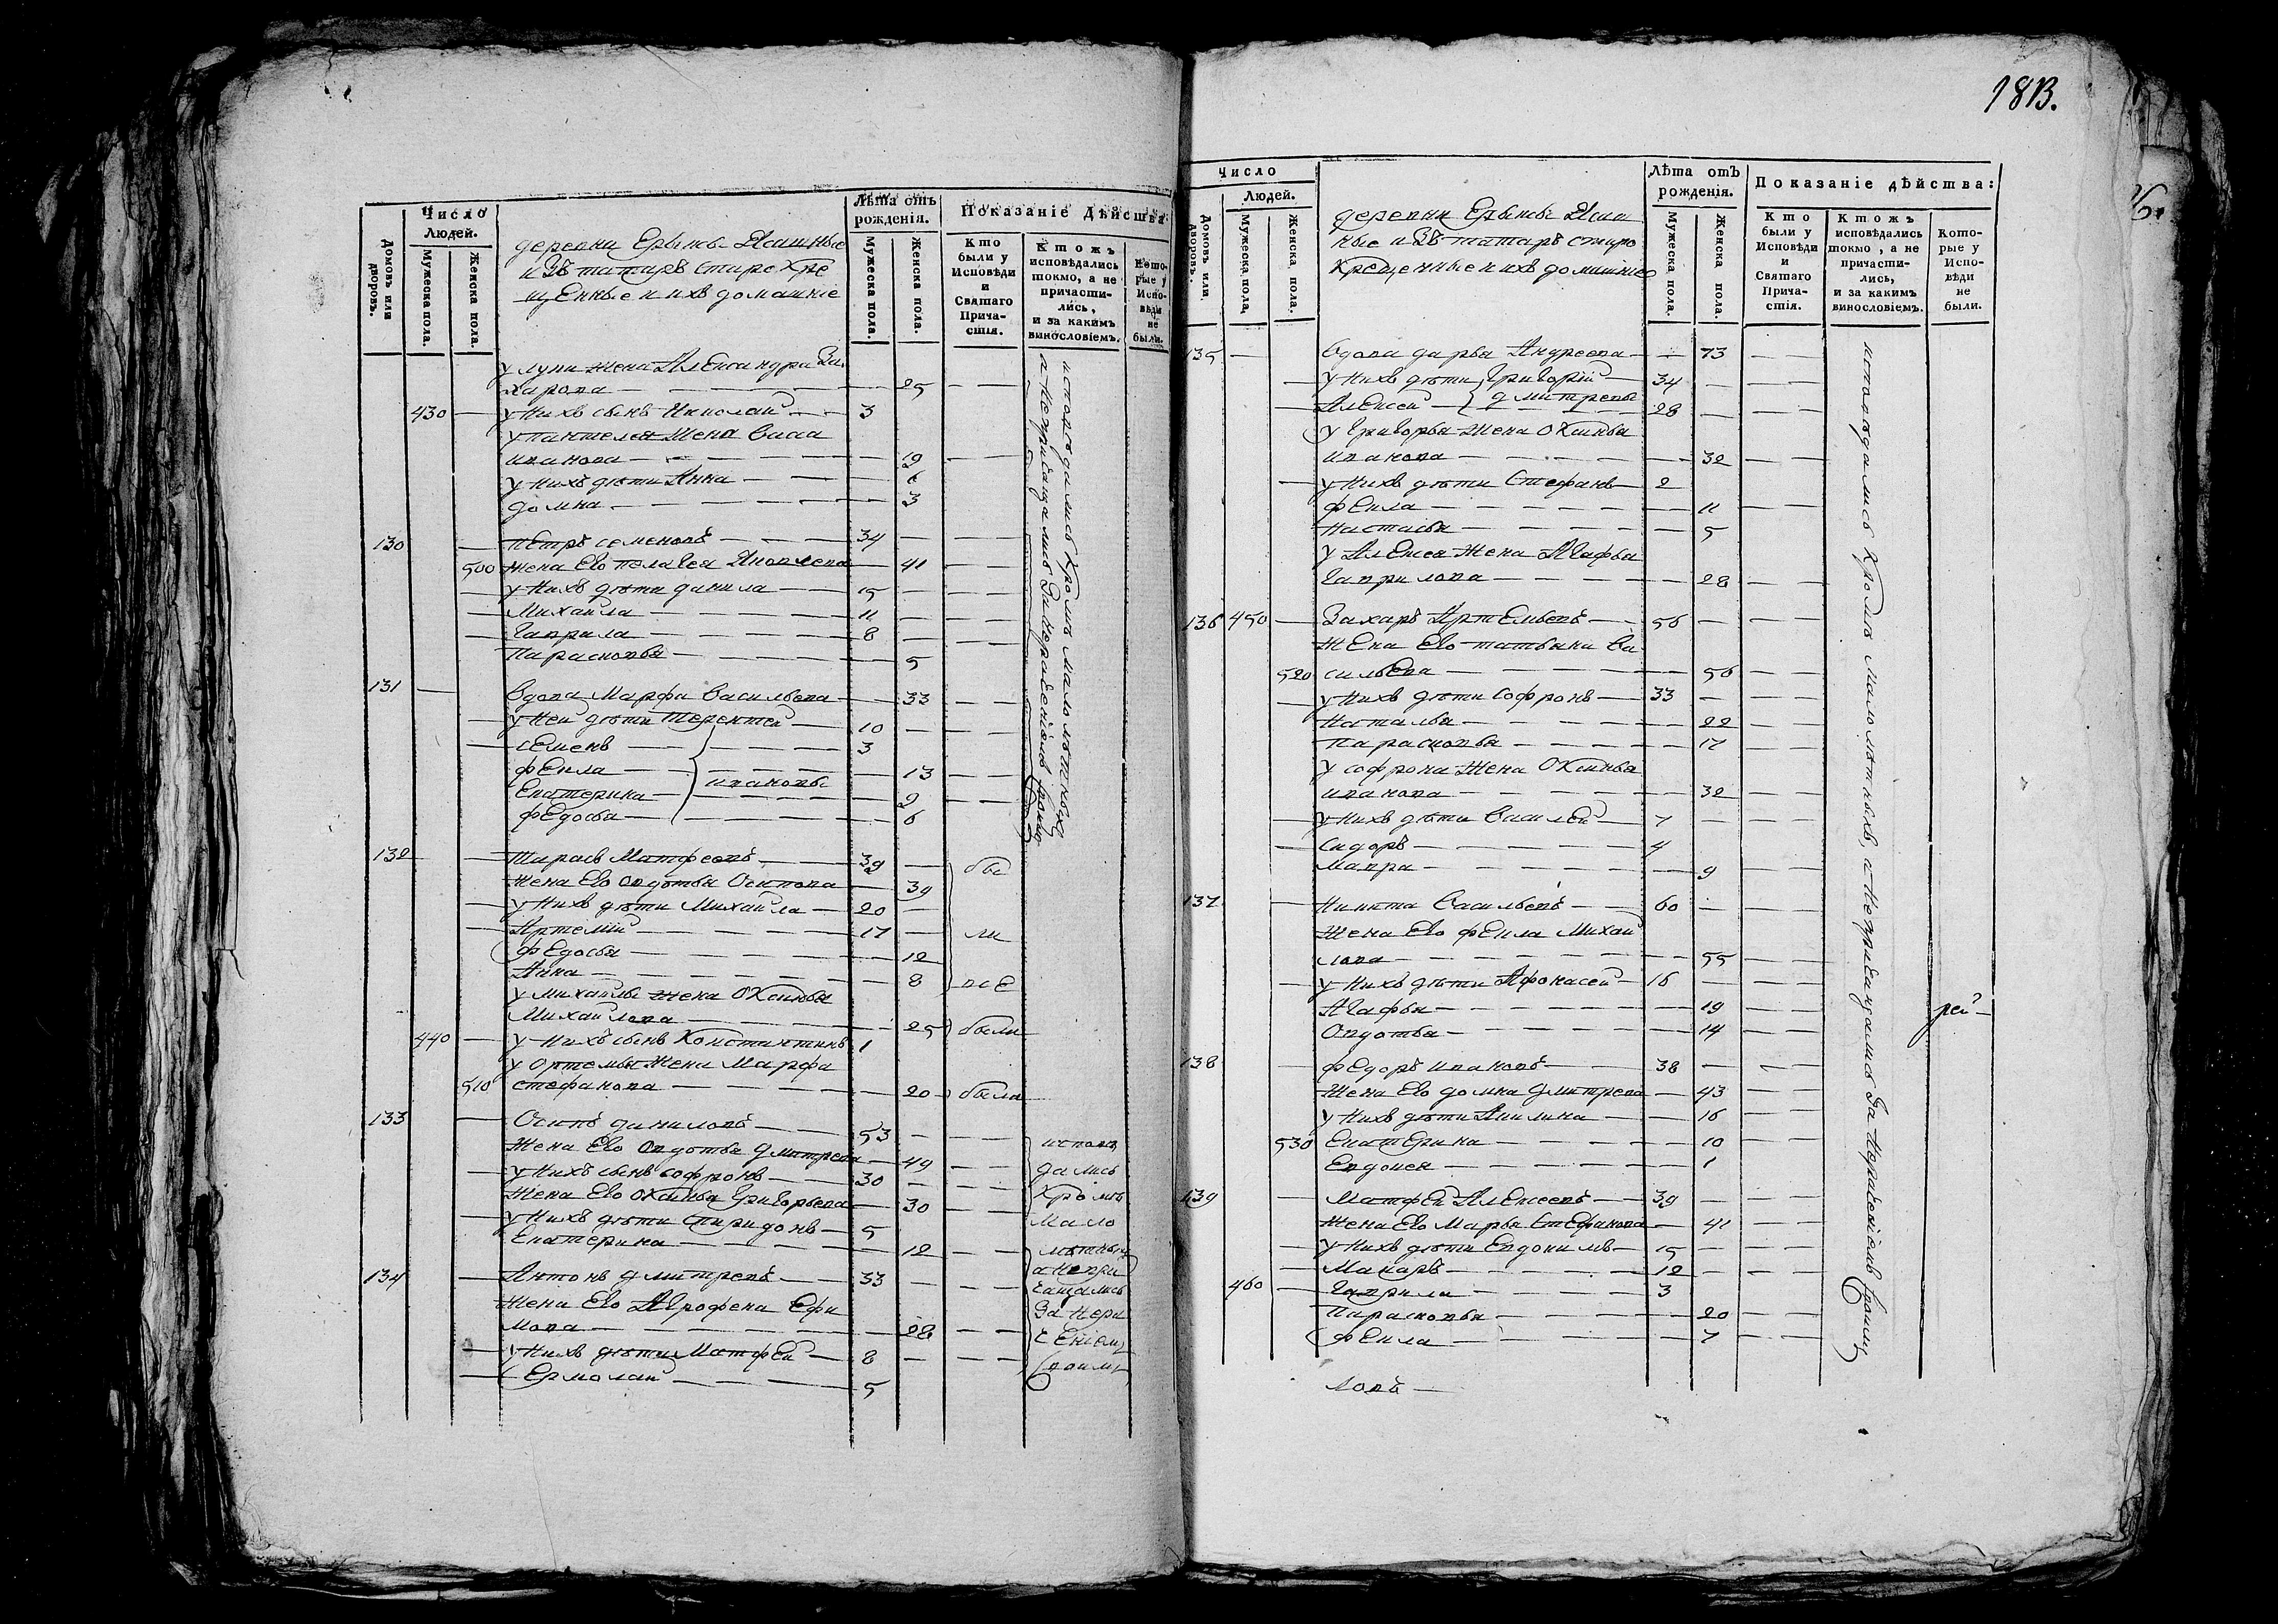 18В.
Число
Людей.
Домовъ или дворовъ.
Мужеска пола.
Женска пола.
деревни Ерыксы Ясашные
и Зъ татаръ старо кре
щенные и ихъ домашнiе
Лѣта отъ рожденiя.
Мужеска пола.
Женска пола.
Показанiе Дѣйства:
Кто были у Исповѣди и Святаго Причастiя.
Ктожъ исповѣдались токмо, а не причастились, и за какимъ винословiемъ.
Которые у Исповѣди не были.
у лупы жена Александра За
харова — 25
430 — у нихъ сынъ Николай — 3
у пантелея жена Васа
иванова — 19
у нихъ дѣти Анна — 6
домна — 3
130 — петръ семеновъ — 34
500 жена Ево пелагея Яковлева — 41
— у нихъ дѣти данила — 15
— Михаила — 11
— гаврила — 8
Парасковья — 5
131 — вдова Марфа васильева — 33
— у ней дѣти терентей — 10
— семенъ — 3
фекла — 13
ивановы
Екатерина — 9
федосья — 6
исповѣдались кромѣ малолѣтныхъ
а непричащались за нерачениемъ своимъ
132 — тарасъ Матфеевъ — 39
жена Ево овдотья Осипова — 39
— у нихъ дѣти Михаила — 20
— Артемiй — 17
федосья — 12
Анна — 8
бы
ли
все
у михаилы жена Оксинья
Михаилова — 25 были
440 — у нихъ сынъ Константинъ 1
у ортемья жена Марфа
510 стефанова — 20 была
133 — Осипъ даниловъ — 53
жена Ево овдотья дмитрева — 49
— у нихъ сынъ софронъ — 30
жена Ево оксинья григорьева — 30
— у нихъ дѣти спиридонъ — 5
Екатерина — 12
134 — Антонъ дмитревъ — 33
жена Ево Агрофена Ефи
мова — 28
— у нихъ дѣти Матфей — 8
— Ермолай — 5
исповѣ
дались
кромѣ
мало
лѣтныхъ
а непри
чащались
за нера
ченiемъ
своимъ
Число
Людей.
Домовъ или дворовъ.
Мужеска пола.
Женска пола.
деревни Ерыксы Яса
ные и Зъ татаръ старо
крещенные и ихъ домашнiе
Лѣта отъ рожденiя.
Мужеска пола.
Женска пола.
Показанiе дѣйства:
Кто были у Исповѣди и Святаго Причастiя.
Ктожъ исповѣдались токмо, а не причастились, и за какимъ винословiемъ.
Которые у Исповѣди не были.
135 — вдова дарья Андреева — 73
— у нихъ дѣти григорiй — 34
— Алексей — дмитревы 28
у григорья жена Оксинья
иванова — 32
— у нихъ дѣти Стефанъ — 2
фекла — 11
настасья — 5
у Алексея жена Агафья
гаврилова — 28
136 450 — Захаръ Артемьевъ — 56
жена Ево татьяна ва
520 сильева — 56
— у нихъ дѣти Софронъ — 33
наталья — 22
парасковья — 17
у софрона жена Оксинья
иванова — 32
— у нихъ дѣти василей — 7
— сидоръ — 4
мавра — 9
137 — никита васильевъ — 60
жена Ево фекла михаи
лова — 55
— у нихъ дѣти Афонасей — 16
Агафья — 19
овдотья — 14
138 — федоръ ивановъ — 38
жена Ево домна дмитрева — 43
у нихъ дѣти Акилина — 16
530 Екатерина — 10
Евдокея — 1
139 — Матфей Алексеевъ — 39
жена Ево Марья стефанова — 41
— у нихъ дѣти Евдокимъ — 15
— Макаръ — 12
460 — гаврила — 3
парасковья — 20
фекла — 7
исповѣдались кромѣ малолѣтныхъ, а непричащались за нерачениемъ своимъ
рей
ловъ